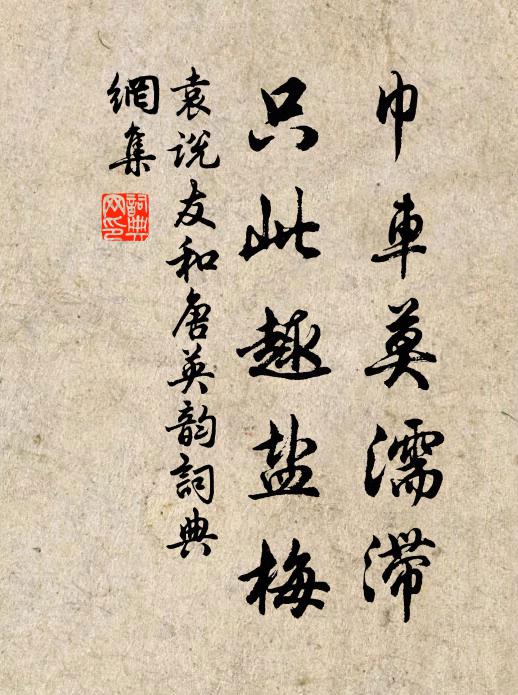 巾车莫濡滞
只此趣盐梅
袁说友和唐英韵詞典
網集
詞典網印